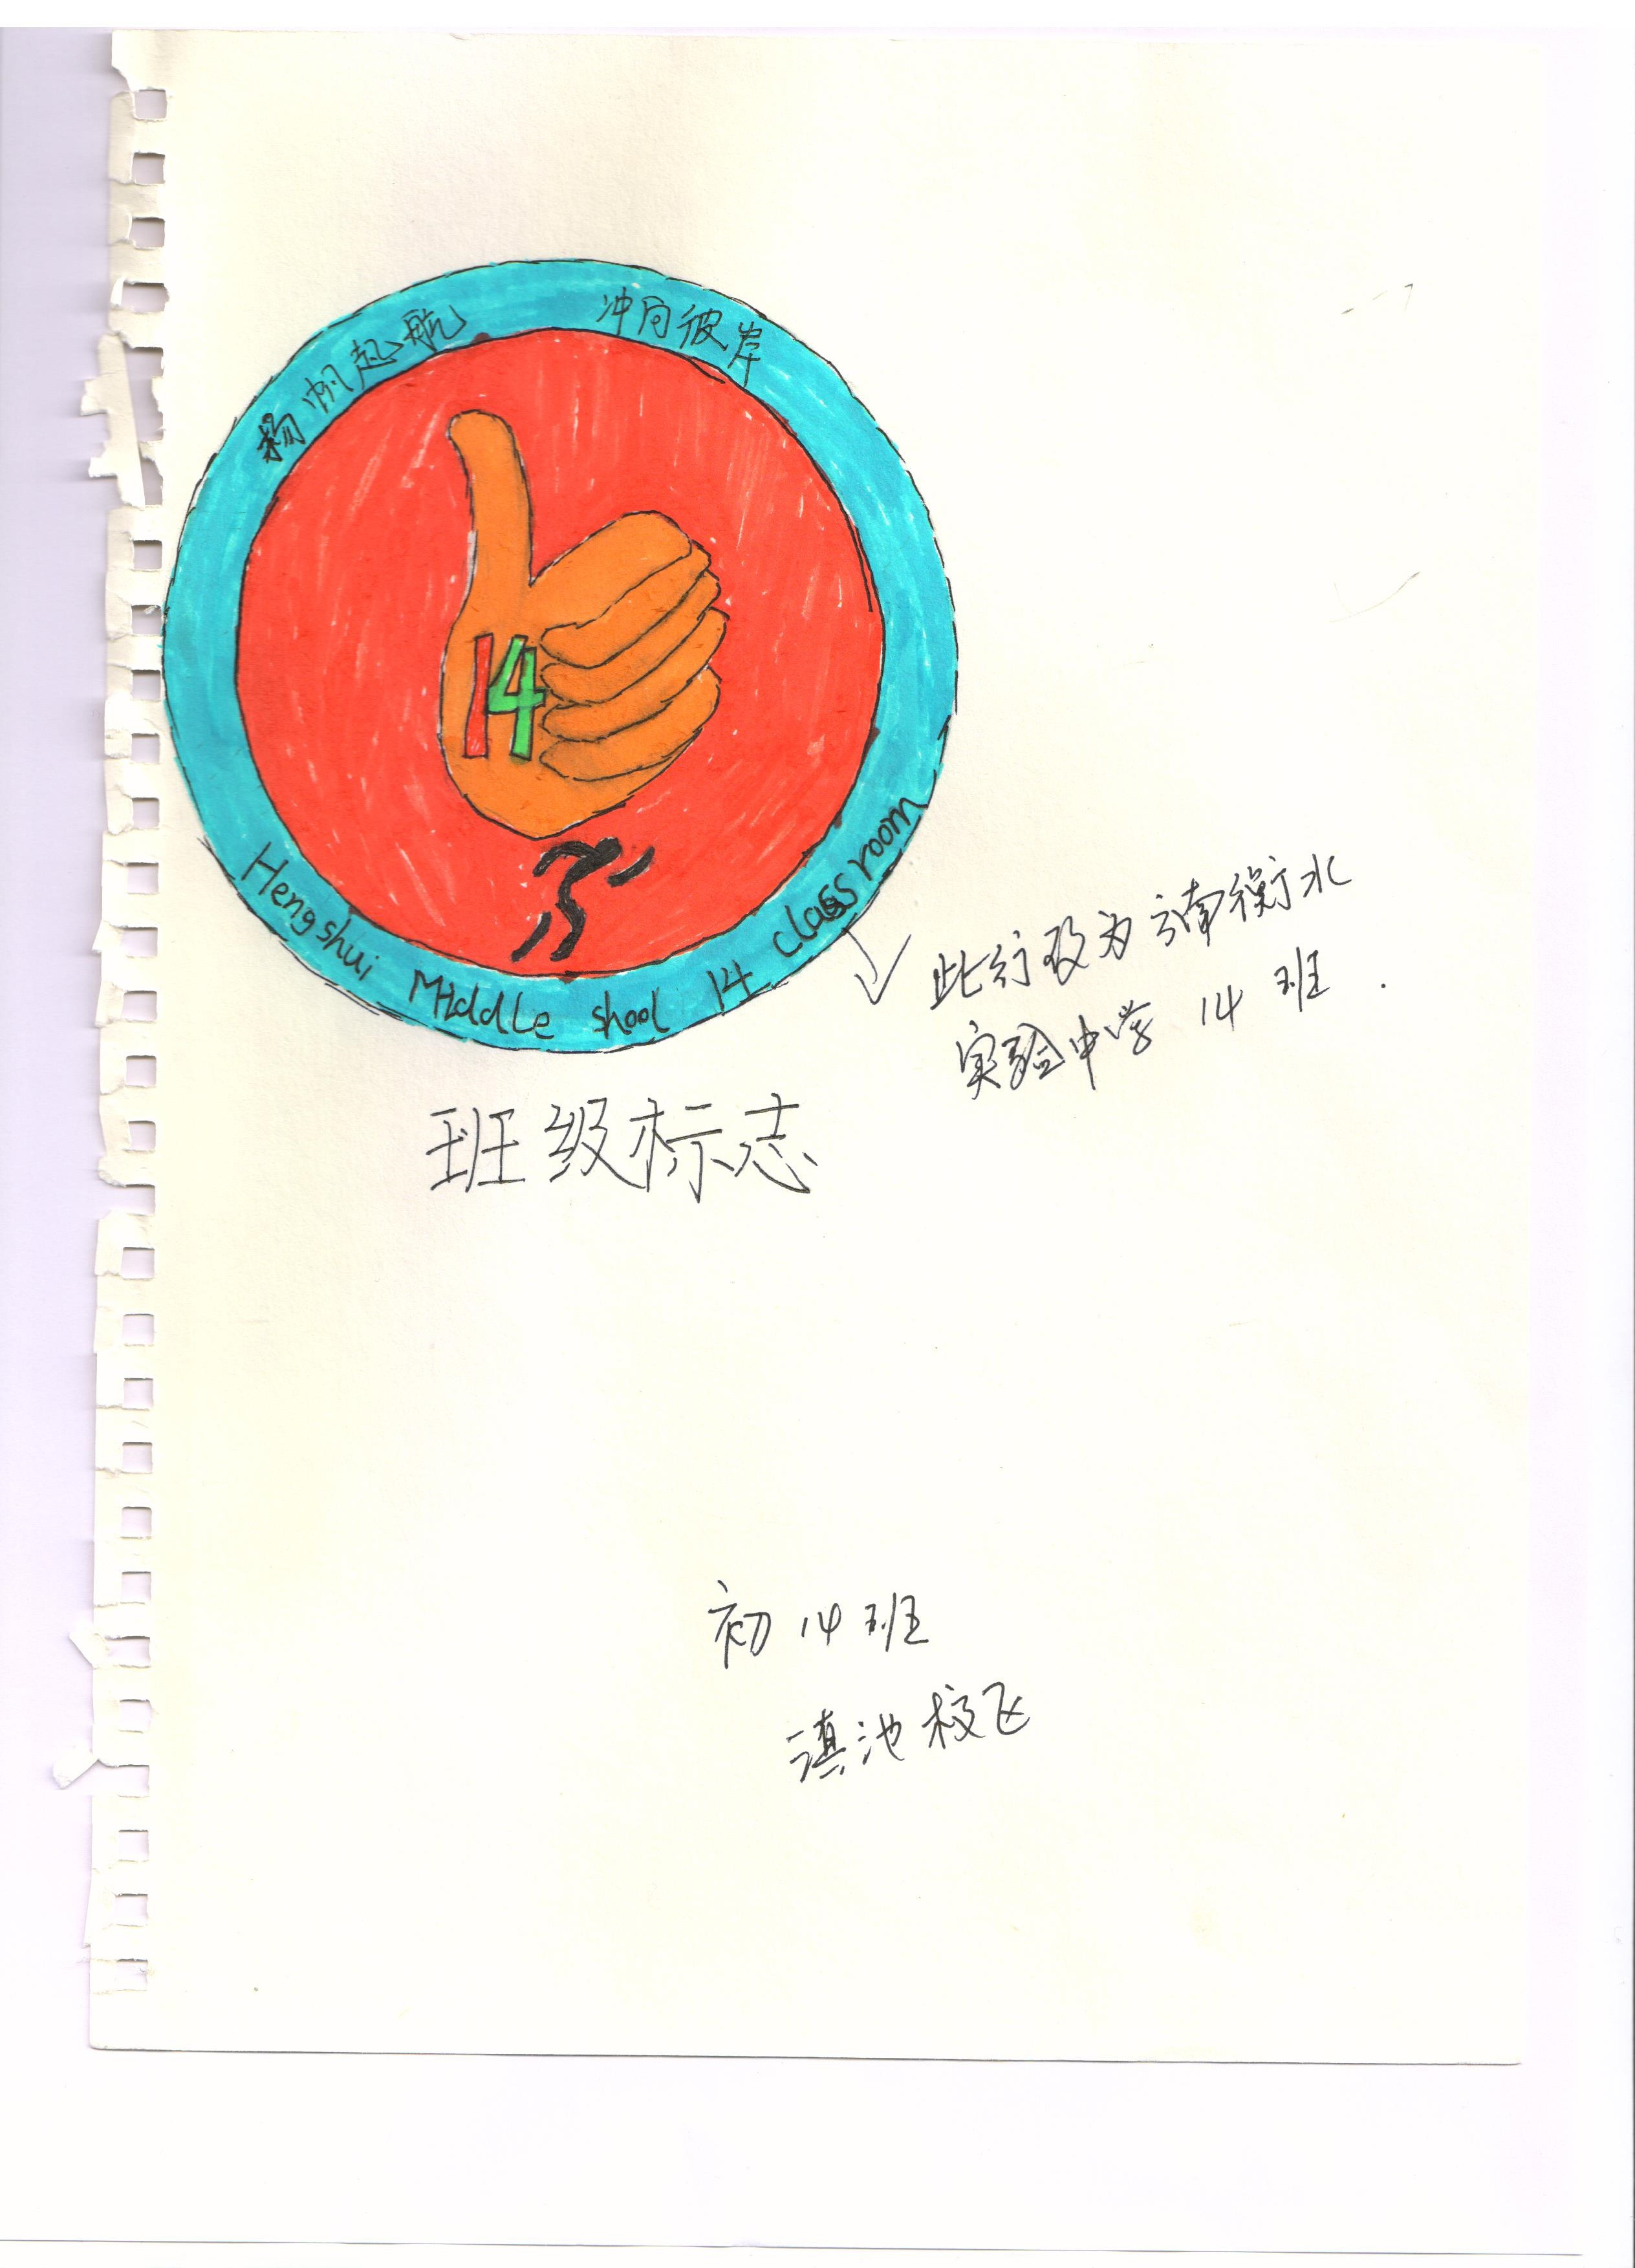 杨帆起航 冲向彼岸
14
Hengshui Middle shool 14 classroom
此行改为云南衡水
实验中学 14 班.
班级标志
初 14 班
滇池校区